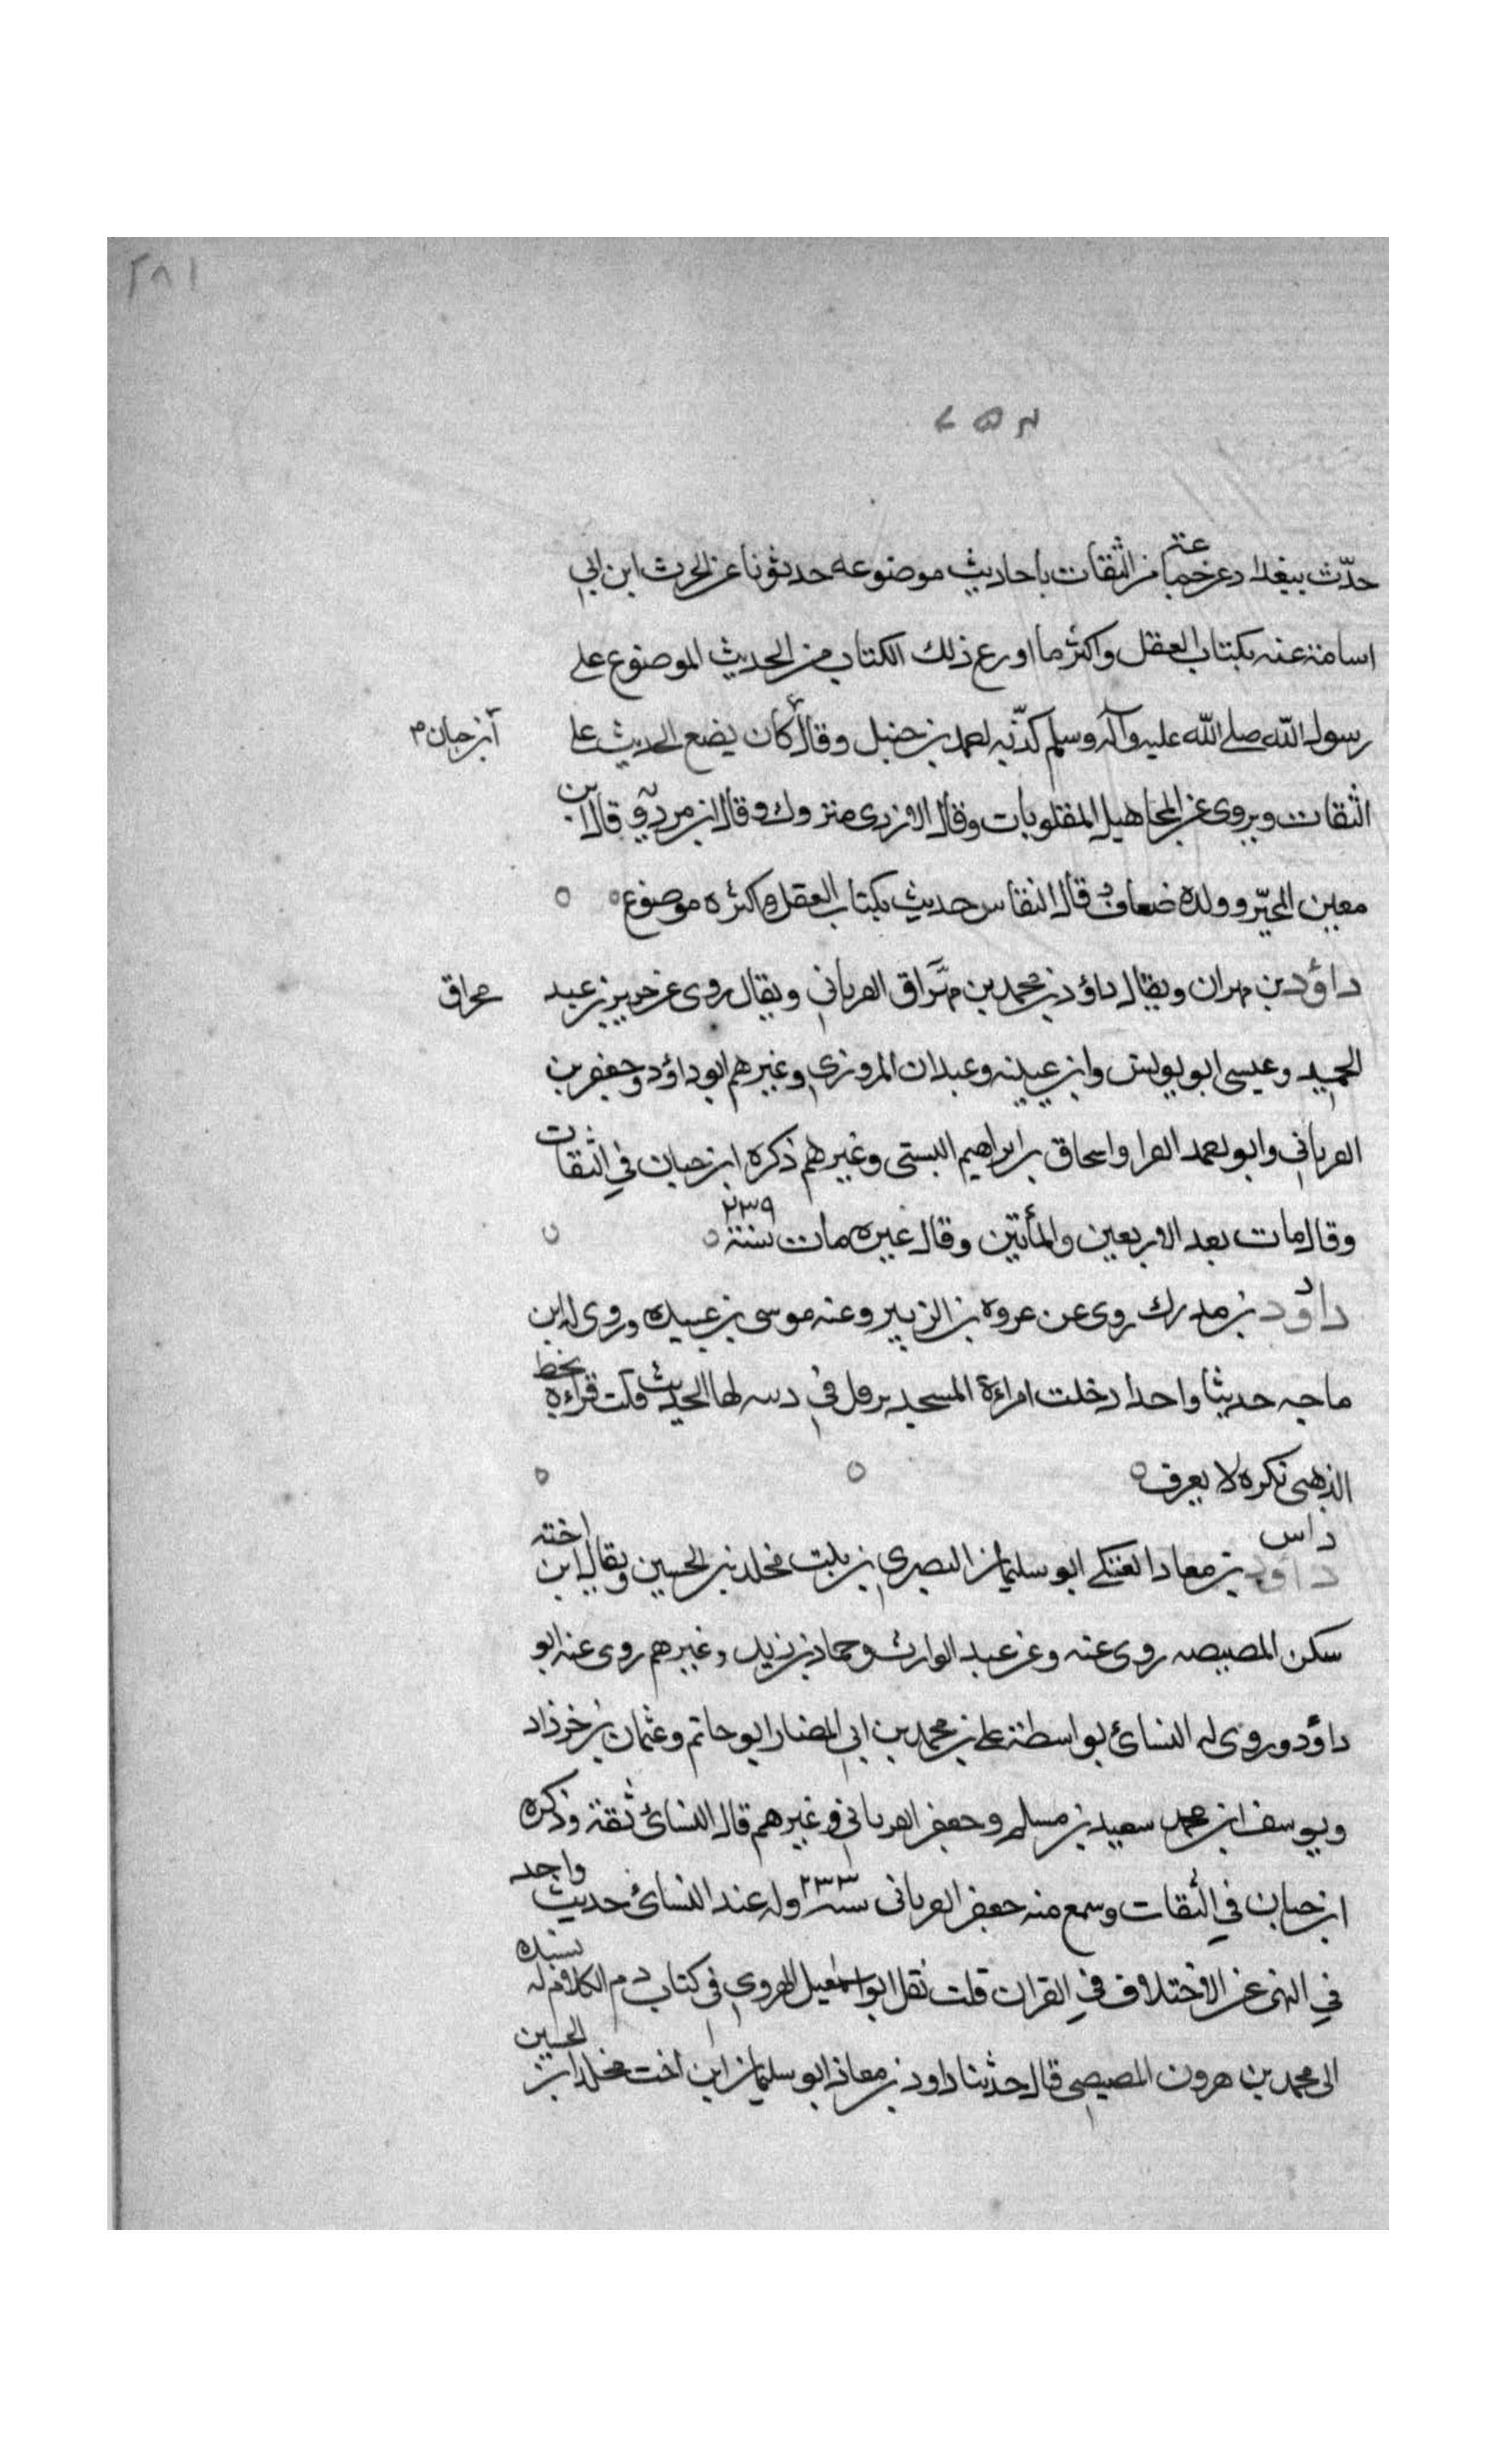 ٢٨١
حدّث ببغداد عن جماعة من الثقات باحاديث موضوعه حدثونا عن الحرث ابن ابي
اسامة عنه بكتاب العقل واكثر ما اورع ذلك الكتاب من الحديث الموضوع على
رسول الله صلى الله عليه وآله وسلم كذّبه احمد بن حنبل وقال كان يضع الحديث على
ابن حبان م
الثقات ويروى عن المجاهيل المقلوبات وقال الازدى متروك وقال ابن مردويه قال ابن
معين المحبّر وولده ضعاف قال النقاس حديث بكتاب العقل اكثره موضوع
داؤد بن مهران ويقال داؤد بن محمد بن مخراق الفرياني ويقال روى عن جرير بن عبد
مخراق
الحميد وعيسى ابو يونس وابن عيينه وعبدان المروزي وغيرهم ابو داؤد وجعفر بن
الفرياني وابو احمد الفرا واسحاق بن ابراهيم البستى وغيرهم ذكره ابن حبان في الثقات
وقال مات بعد الاربعين والمأتين وقال غيره مات سنة ٢٣٩
داؤد بن مدرك روى عن عروه بن الزبير وعنه موسى بن عبيده وروى له ابن
ماجه حديثا واحدا دخلت امراءة المسجد ترفل في لها الحديث قلت قراءة بخط
الذهبى نكره لا يعرف
د اس
داؤد بن معاد العتكى ابو سليمان البصري بن بنت مخلد بن الحسين ويقال ابن اخته
سكن المصيصه روى عنه وعن عبد الوارث وحماد بن زيد وغيرهم روى عنه ابو
داؤد وروى له النسائ بواسطة على بن محمد بن ابي المضا وابو حاتم وعثمان بن خرزاد
ويوسف ابن محمد سعيد بن مسلم وجعفر الفرياني وغيرهم قال النسائ ثقة وذكره
ابن حبان في الثقات وسمع منه جعفر الفرياني سنة ٢٣٣ وله عند النسائ حديث واحد
في النهى عن الاختلاف في القران قلت نقل ابو اسمعيل الهروي في كتاب ذم الكلام له بسنده
الى محمد بن هرون المصيصى قال حدثنا داود بن معاذ ابو سليمان ابن اخت مخلد ابن الحسين